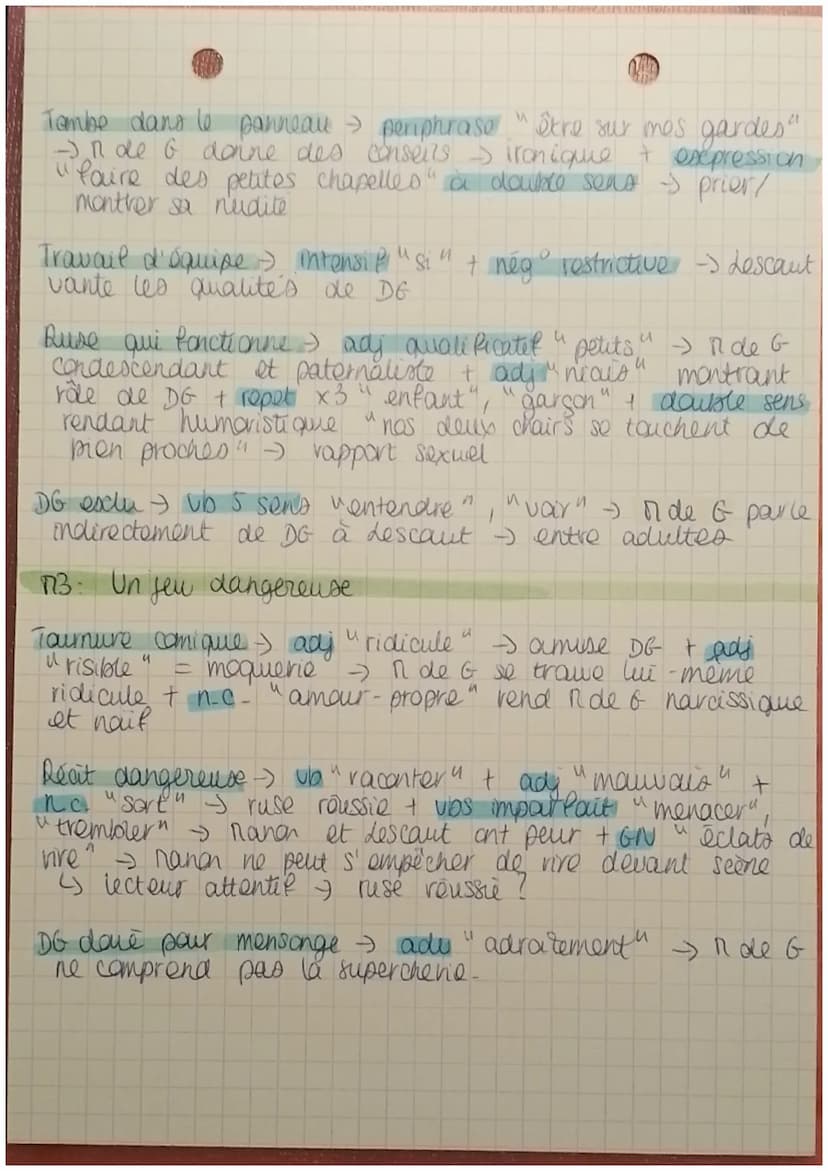 Tombe dans le panneau → periphrase "être sur mes gardes"
→ M de G donne des conseils → ironique + expression
"faire des petites chapelles" à double sens → prier/
montrer sa nudité
Travail d'équipe → intensif "si" + nég° restrictive → Lescaut
vante les qualités de DG
Ruse qui fonctionne → adj qualificatif "petits" → M de G
condescendant et paternaliste + adj "niais" montrant
rôle de DG + repet x3 "enfant", "garçon" + double sens
rendant humoristique "nos deux chairs se touchent de
bien proches" → rapport sexuel
DG exclu → vb 5 sens "entendre", "voir" → M de G parle
indirectement de DG à Lescaut → entre adultes
M3: Un jeu dangereuse
Tournure comique → adj "ridicule" → amuse DG + adj
"risible" = moquerie → M de G se trouve lui-même
ridicule + n.c. "amour-propre" rend M de G narcissique
et naïf
Récit dangereuse → vb "raconter" + adj "mauvais" +
n.c. "sort" → ruse réussie + vbs imparfait "menacer",
"trembler" → Manon et Lescaut ont peur + GN "éclats de
rire" → Manon ne peut s'empêcher de rire devant scène
↳ lecteur attentif → ruse réussie ?
DG doué pour mensonge → adv "adroitement" → M de G
ne comprend pas la supercherie.